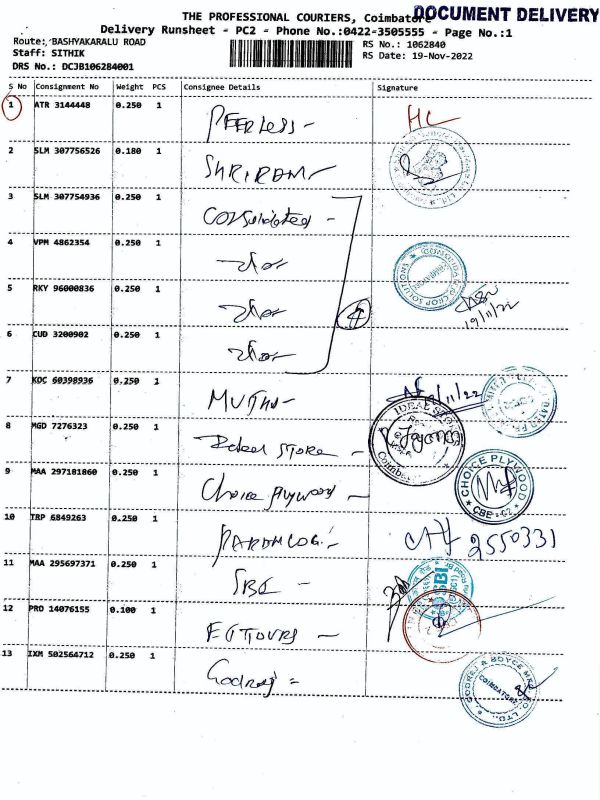 THE PROFESSIONAL COURIERS, Coimbatore
DOCUMENT DELIVERY
Delivery Runsheet - PC2 - Phone No.:0422-3505555 - Page No.:1
Route: BASHYAKARALU ROAD
RS No.: 1062840
Staff: SITHIK
RS Date: 19-Nov-2022
DRS No.: DCJB106284001
S No Consignment No Weight PCS Consignee Details Signature
1 ATR 3144448 0.250 1 PEERLESS - HC
2 SLM 307756526 0.180 1 SHRIRAM -
3 SLM 307754936 0.250 1 Consolidated -
4 VPM 4862354 0.250 1
5 RKY 96000836 0.250 1
4
19/11/22
6 CUD 3200902 0.250 1
7 KDC 60398936 0.250 1 MUTHU - /11/22
8 MGD 7276323 0.250 1 Ideal STORE -
IDEAL
Coimbatore
9 MAA 297181860 0.250 1 Choice Plywood -
CHOICE PLYWOOD
CBE
10 TRP 6849263 0.250 1 2550331
11 MAA 295697371 0.250 1 SBI -
SBI
12 PRO 14076155 0.100 1
13 IXM 502564712 0.250 1 Godrej =
GODREJ & BOYCE MFG. CO. LTD.
COIMBATORE